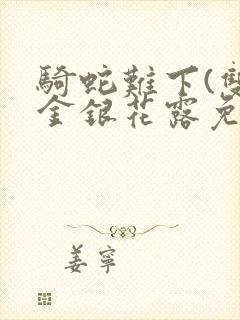 騎蛇難下(雙
金銀花露免
姜寧